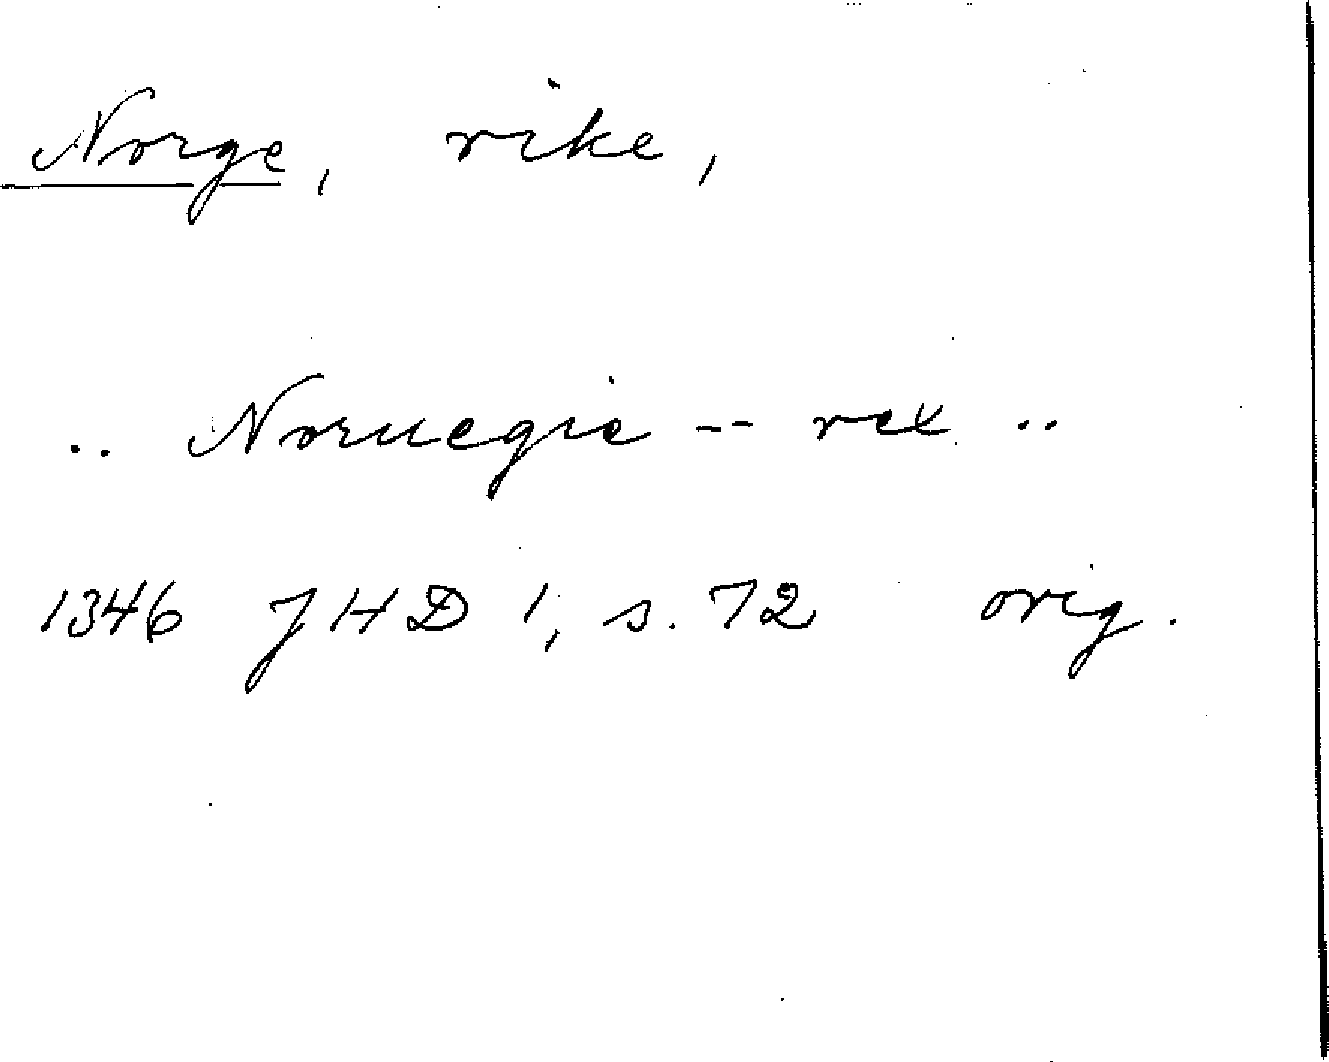 Norge, rike,
.. Noruegie -- rex ..
1346 JHD 1, s. 72 orig.